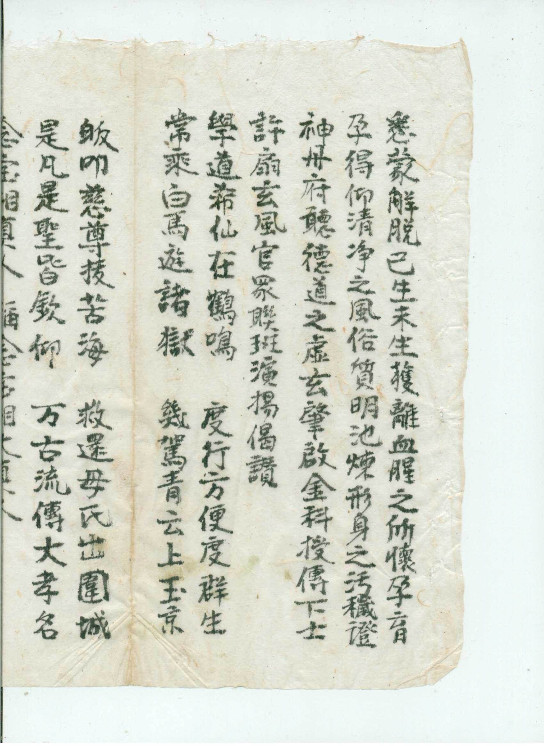 悉蒙解脱已生未生獲離血腥之所懷孕育
孕得仰清净之風俗質明池煉形身之污穢證
神丹府聽德道之虛玄肇啟金科授傳下士
許扇玄風官眾聯班演揚偈讚
學道希仙在鶴鳴 度行方便度群生
常乘白馬遊諸獄 幾駕青云上玉京
皈叩慈尊拔苦海 救還母氏出圍城
是凡是聖皆欽仰 万古流傳大孝名